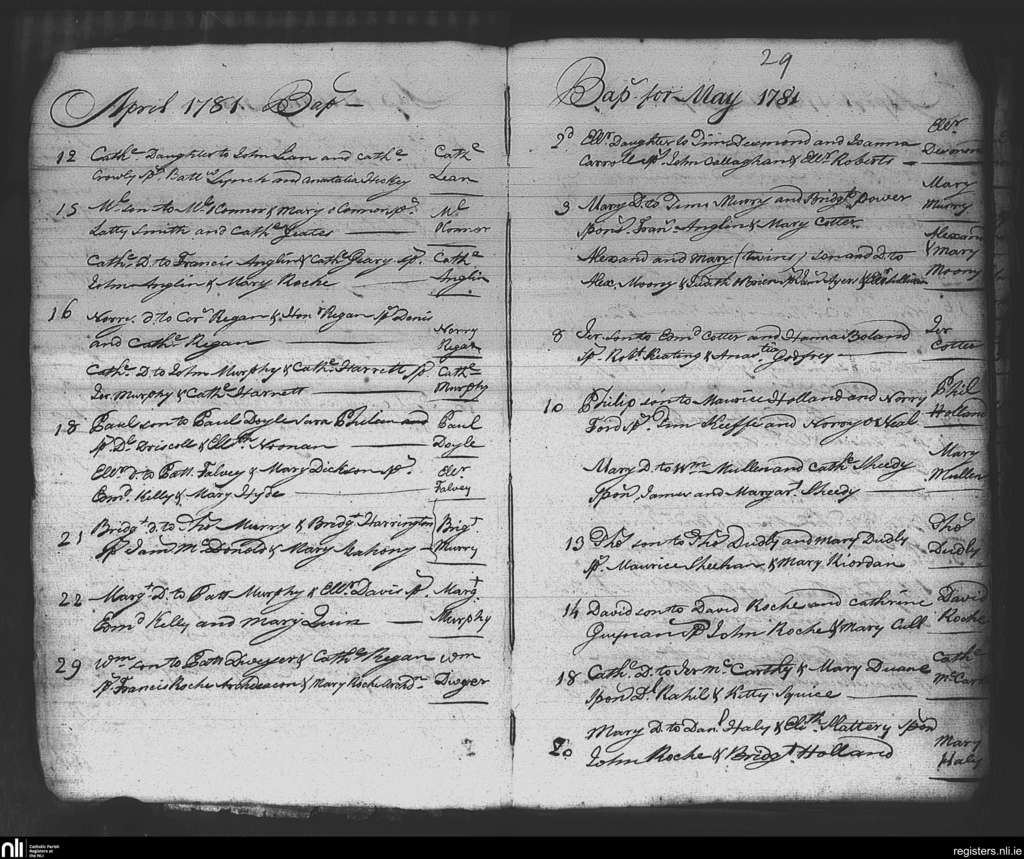 April 1781. Bap.
12 Cathe. Daughter to John Lean and Cathe. Cathe
Crowly Sp. Battw Lynch and Anatalia Hickey Lean
15 Mc. son to Mc. OConnor & Mary OConnor Sp. Mc.
Latty Smith and Cathe. Yeates OConnor
Cathe. D. to Francis Anglin & Cathe. Geary Sp. Cathe
John Anglin & Mary Roche Anglin
16 Norry. d. to Cor. Regan & Hon. Regan Sp. Denis Norry
and Cathe. Regan Regan
Cathe. D to John Murphy & Cathe. Harnett Sp Cathe.
Jer. Murphy & Cathe. Harnett Murphy
18 Paul son to Paul Doyle Sara Phelan and Paul
Sp. Dl. Driscoll & Elleth. Noonan Doyle
Ellr. d. to Patt. Falvey & Mary Dickson Sp. Ellr
Edmd. Kelly & Mary Hyde Falvey
21 Bridgt. d. to Thos. Murry & Bridgt. Harrington Brigt.
Sp. Jams. McDonold & Mary Mahony Murry
22 Margt. D. to Patt Murphy & Ellr. Davis Sp. Margt.
Edmd Kelly and Mary Quin Murphy
29 Wm son to Patt Dwyer & Cathe. Regan Wm
Sp. Francis Roche Archdeacon & Mary Roche Dwyer
29
Bap. for May 1781
2d Ellr. Daughter to Tim Desmond and Joanna Ellr.
Carroll Sp. John Callaghan & Ellr. Roberts Desmon
3 Mary D. to Tims Murry and Bridgt. Power Mary
Spons. Frans. Anglin & Mary Cotter Murry
Alexand and Mary (twins) son and D. to Alexand
& Mary
Alex. Moony & Judith OBrien Sp. Ayers & Sullivan Moony
8 Jer son to Edmd Cotter and Hanna Boland Jer
Sp. Robt. Keating & Anastia Godfrey Cotter
10 Philip son to Maurice Holland and Norry Phil
Ford Sp. Tim Keeffe and Norry ONeal Holland
Mary D. to Wm Mullen and Cathe Sheedy Mary
Spon. James and Margart. Sheedy Mullen
13 Thos. son to Thos. Dudly and Mary Dudly Thos.
Sp. Maurice Sheehan & Mary Riordan Dudly
14 David son to David Roche and Cathrine David
Guynan Sp John Roche & Mary Cull Roche
18 Cathe. D. to Jer McCarthy & Mary Duane Cathe
Spon. Dl. Kahil & Kitty Squice McCart
Mary D. to Danl. Haly & Elith. Slattery Spon
20 John Roche & Bridgt. Holland Mary
Haly
nli Catholic Parish
Registers at
the NLI
registers.nli.ie